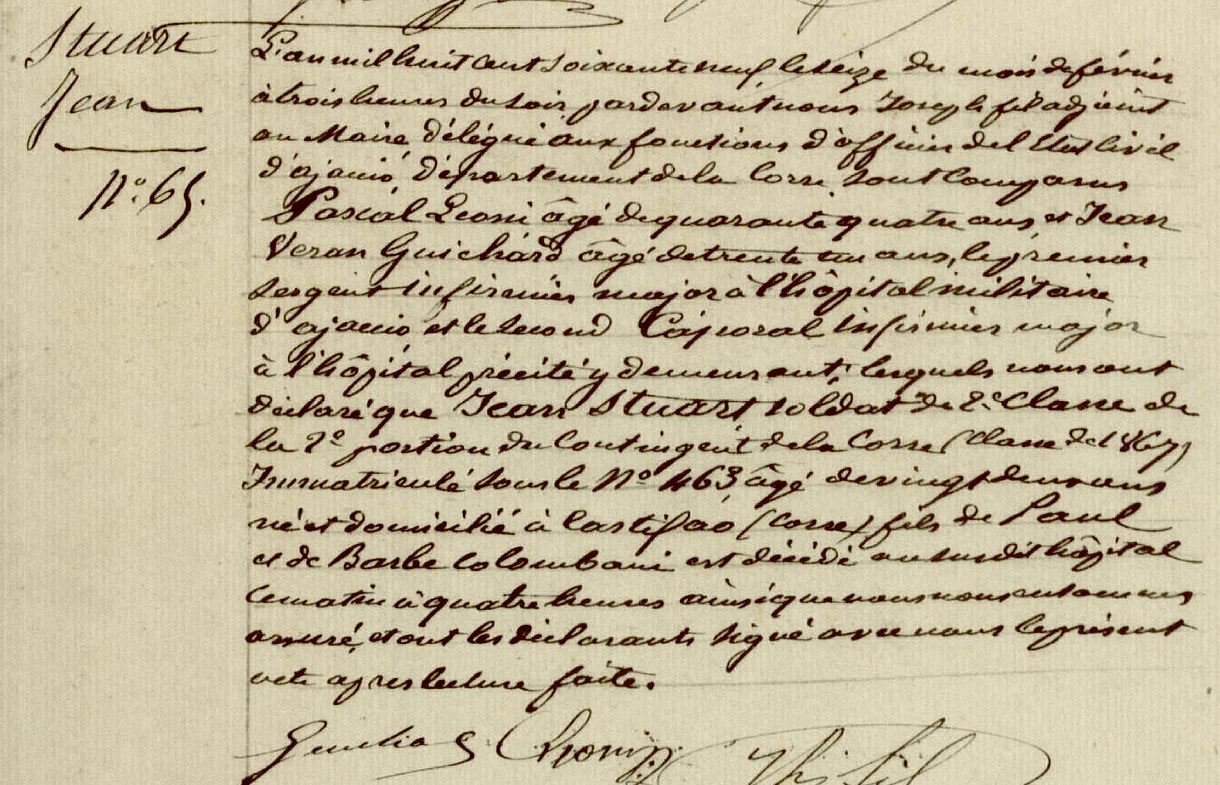 Stuart
Jean
N.º 65.
L'an mil huit cent soixante neuf le seize du mois de février
à trois heures du soir, par devant nous Joseph fil adjoint
au Maire délégué aux fonctions d'officier de l'Etat Civil
d'ajaccio, département de la Corse, sont comparus
Pascal Leoni âgé de quarante quatre ans et Jean
Veran Guichard âgé de trente un ans, le premier
Sergent infirmier major à l'hôpital militaire
d'ajaccio et le second Caporal infirmier major
à l'hôpital précité y demeurant, lesquels nous ont
déclaré que Jean Stuart soldat de 2.e Classe de
la 2.e portion du Contingent de la Corse (Classe de 1867)
Immatriculé sous le Nº 463 âgé de vingt deux ans
né et domicilié à Castifao (Corse) fils de Paul
et de Barbe Colombani est décédé au susdit hôpital
ce matin à quatre heures ainsi que nous nous en sommes
assuré, et ont les déclarants signé avec nous le présent
acte après lecture faite.
Guichard Leoni fil